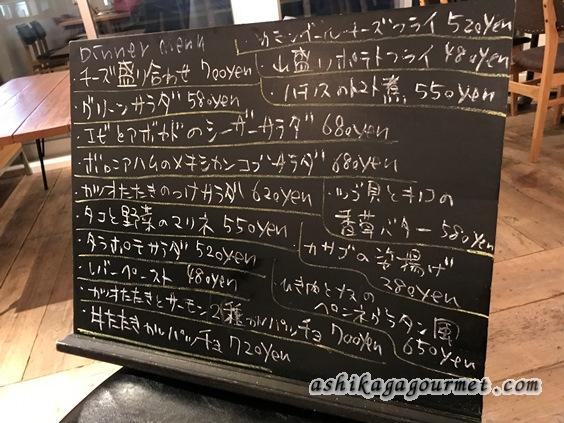 Dinner menu
チーズ盛り合わせ 700yen
・グリーンサラダ 580yen
・エビとアボカドのシーザーサラダ 680yen
・ボロニアハムのメキシカンコブサラダ 680yen
・カツオたたきのっけサラダ 620yen
・タコと野菜のマリネ 550yen
・タラポテサラダ 520yen
・レバーペースト 480yen
・カツオたたきとサーモン2種カルパッチョ 700yen
・牛たたきカルパッチョ 720yen
カマンベールチーズフライ 520yen
・山盛りポテトフライ 480yen
・ハチノスのトマト煮 550yen
・ツブ貝とキノコの
香草バター 580yen
・カサゴの姿揚げ
380yen
・ひき肉とナスの
ペンネグラタン風
650yen
ashikagagourmet.com